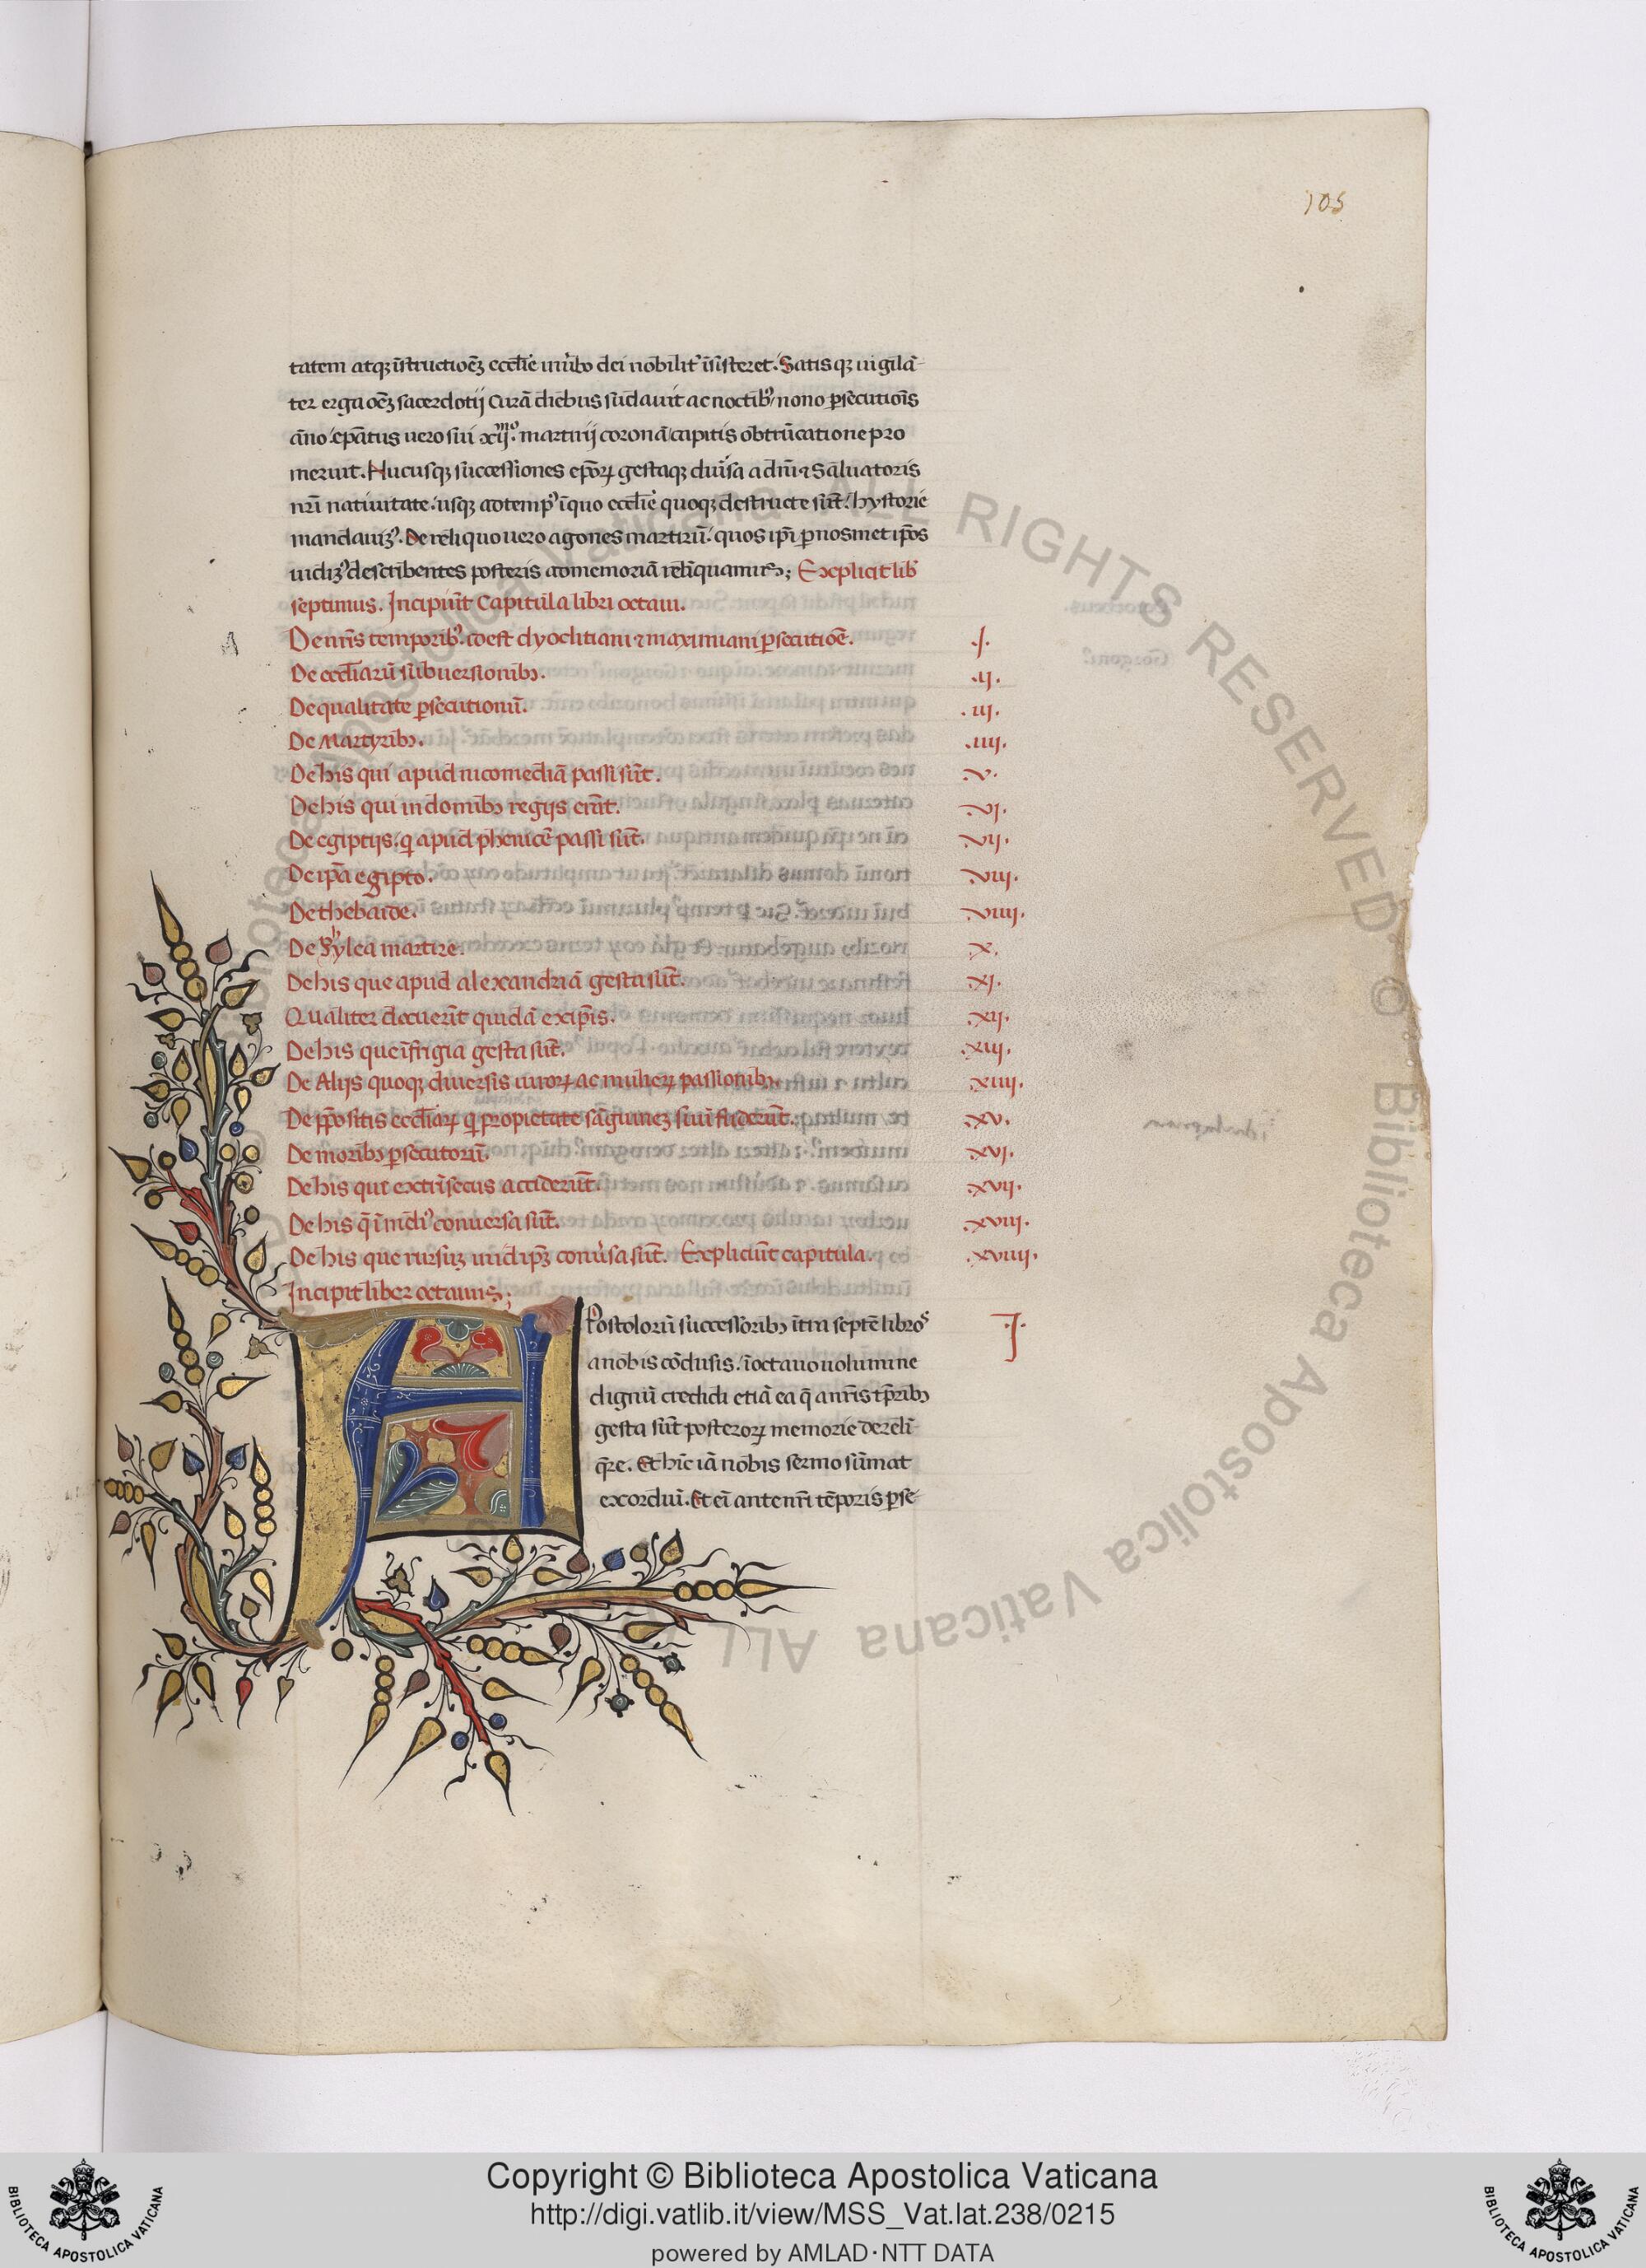 105
tatem atqꝫ īstructioēꝫ ecclīe ūirbo dei nobilit᾽ īsisteret. Satis qꝫ uigilā-
ter erga oēꝫ sacerdotij curā diebus sudauit ac noctibꝰ nono ꝑsecutiōis
āno. ep̄atus uero sui xij.mo martirij coronā capitis obtrūcatione pro
meruit. Hucusqꝫ successiones ep̄oꝝ gestaqꝫ du̍isa a dn̄i ⁊ Saluatoris
nr̄i natiuitate. usqꝫ ad temp᾽ ī quo ecclīe quoqꝫ destructe sūt. hystorie
mandauiꝫ᾽. De reliquo uero agones martirū. quos ip̄i ꝑ nosmet ip̄os
uidiꝫ᾽ describentes posteris ad memoriā reliquamus; Explicit lib̄
septimus. Incipiūt Capitula libri octaui.
De nr̄is temporibꝰ. id est dyoclitiani ⁊ maximiani ꝑsecutiōe. .I.
De eccliarū subuersionibꝫ. .ij.
De qualitate ꝑsecutionū. .iij.
De Martyribꝫ. .iiij.
De his qui apud nicomediā passi sūt. .v.
De his qui in domibꝫ regijs erāt. .vj.
De egiptijs. q apud phenicē passi sūt. .vij.
De ip̄a egipto. .viij.
De thebaide. .viiij.
De Phylea martire. .x.
De his que apud alexandriā gesta sūt. .xj.
Qualiter docuerīt quidā ex ip̄is. .xij.
De his que ī frigia gesta sūt. .xiij.
De Alijs quoqꝫ diuersis uiroꝝ ac mulieꝝ passionibꝫ. .xiiij.
De p̄positis eccliaꝝ q pro pietate sāguineꝫ suū fuderūt. .xv.
De moribꝫ ꝑsecutorū. .xvj.
De his que extrīsecus acciderūt. .xvij.
De his q̄ ī meli᾽ conuersa sūt. .xviij.
De his que rursuꝫ in id ip̄ꝫ conu̍sa sūt. Expliciūt capitula. .xviiij.
Incipit liber octauus;
APostolorū successoribꝫ ītra septē libros .I.
a nobis cōclusis. ī octauo uolumine
dignū credidi etiā ea q̄ a nr̄is tp̄ribꝫ
gesta sūt posteroꝝ memorie dereli-
q̄re. Et hīc iā nobis sermo sūmat
exordiū. Et eī ante nr̄i tēporis ꝑse-
ALL RIGHTS RESERVED © Biblioteca Apostolica Vaticana
Copyright © Biblioteca Apostolica Vaticana
http://digi.vatlib.it/view/MSS_Vat.lat.238/0215
powered by AMLAD·NTT DATA
BIBLIOTECA APOSTOLICA VATICANA
BIBLIOTECA APOSTOLICA VATICANA